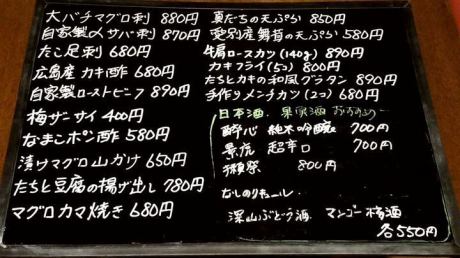 大バチマグロ刺 880円
自家製〆サバ刺 870円
たこ足刺 680円
広島産 カキ酢 680円
自家製ローストビーフ 890円
梅ザーサイ 400円
なまこポン酢 580円
漬けマグロ山かけ 650円
たちと豆腐の揚げ出し 780円
マグロカマ焼き 680円
真だちの天ぷら 850円
愛別産舞茸の天ぷら 580円
牛肩ロースカツ (140g) 890円
カキフライ (5コ) 800円
たちとカキの和風グラタン 890円
手作りメンチカツ (2コ) 680円
日本酒 果実酒 おすすめ
酔心 純米吟醸 700円
景虎 超辛口 700円
獺祭 800円
リキュール
深山ぶどう酒 マンゴー梅酒
各550円